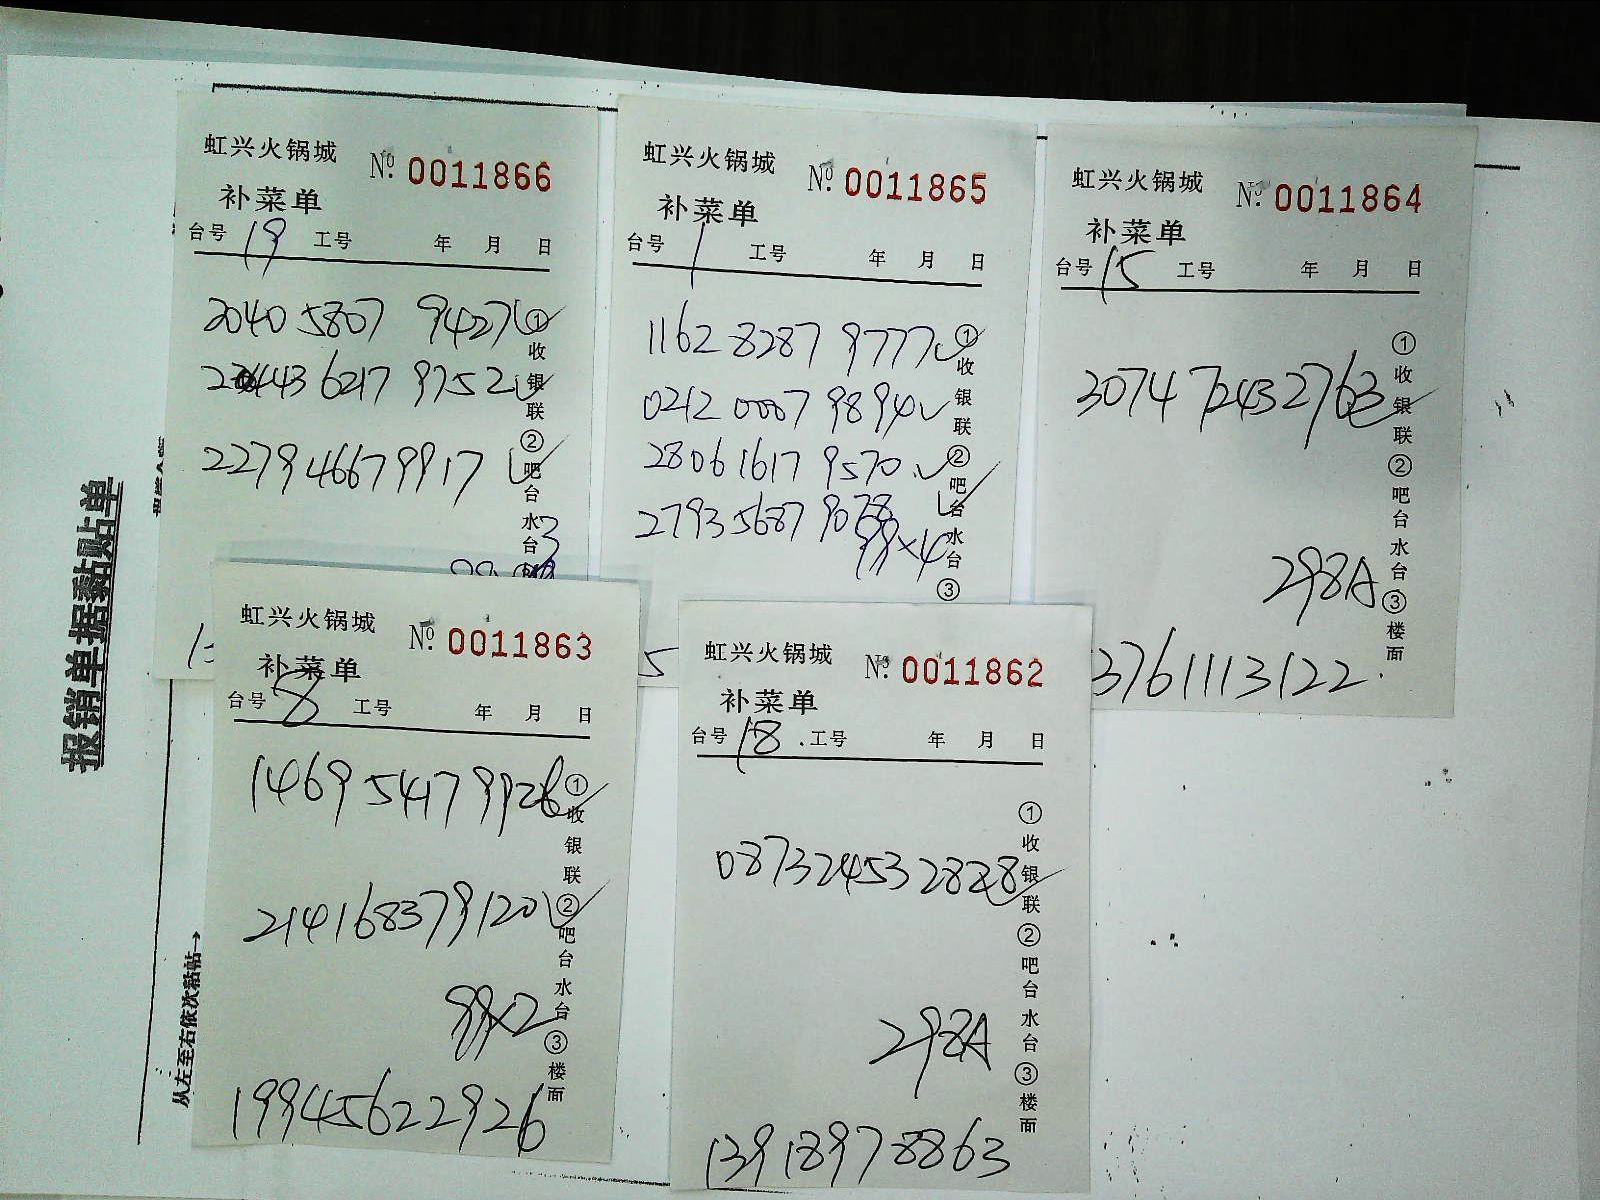 虹兴火锅城 No. 0011866
补菜单
台号 19 工号 年 月 日
2040 5807 9427
22443 6217 9752
2279 4667 9917
①收银联②吧台水台
虹兴火锅城 No. 0011865
补菜单
台号 1 工号 年 月 日
1162 8287 9777
0212 0007 9894
2806 1617 9570
2793 5687 9078
99×4
①收银联②吧台水台③
虹兴火锅城 No. 0011864
补菜单
台号 15 工号 年 月 日
3074 7243 2763
298A
3761113122
①收银联②吧台水台③楼面
虹兴火锅城 No. 0011863
补菜单
台号 8 工号 年 月 日
1469 5417 9926
2141 6837 9120
99×2
19945622926
①收银联②吧台水台③楼面
虹兴火锅城 No. 0011862
补菜单
台号 18 工号 年 月 日
0873 2453 2828
298A
13918978863
①收银联②吧台水台③楼面
报销单据黏贴单
从左至右依次粘帖→